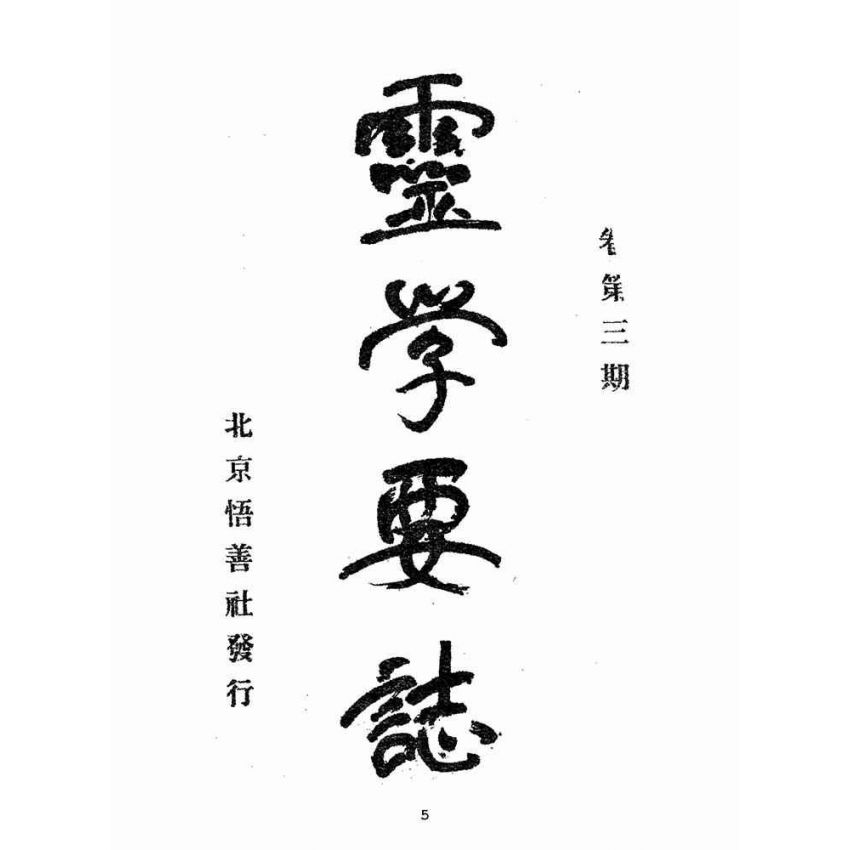 卷第三期
靈学要誌
北京悟善社發行
5